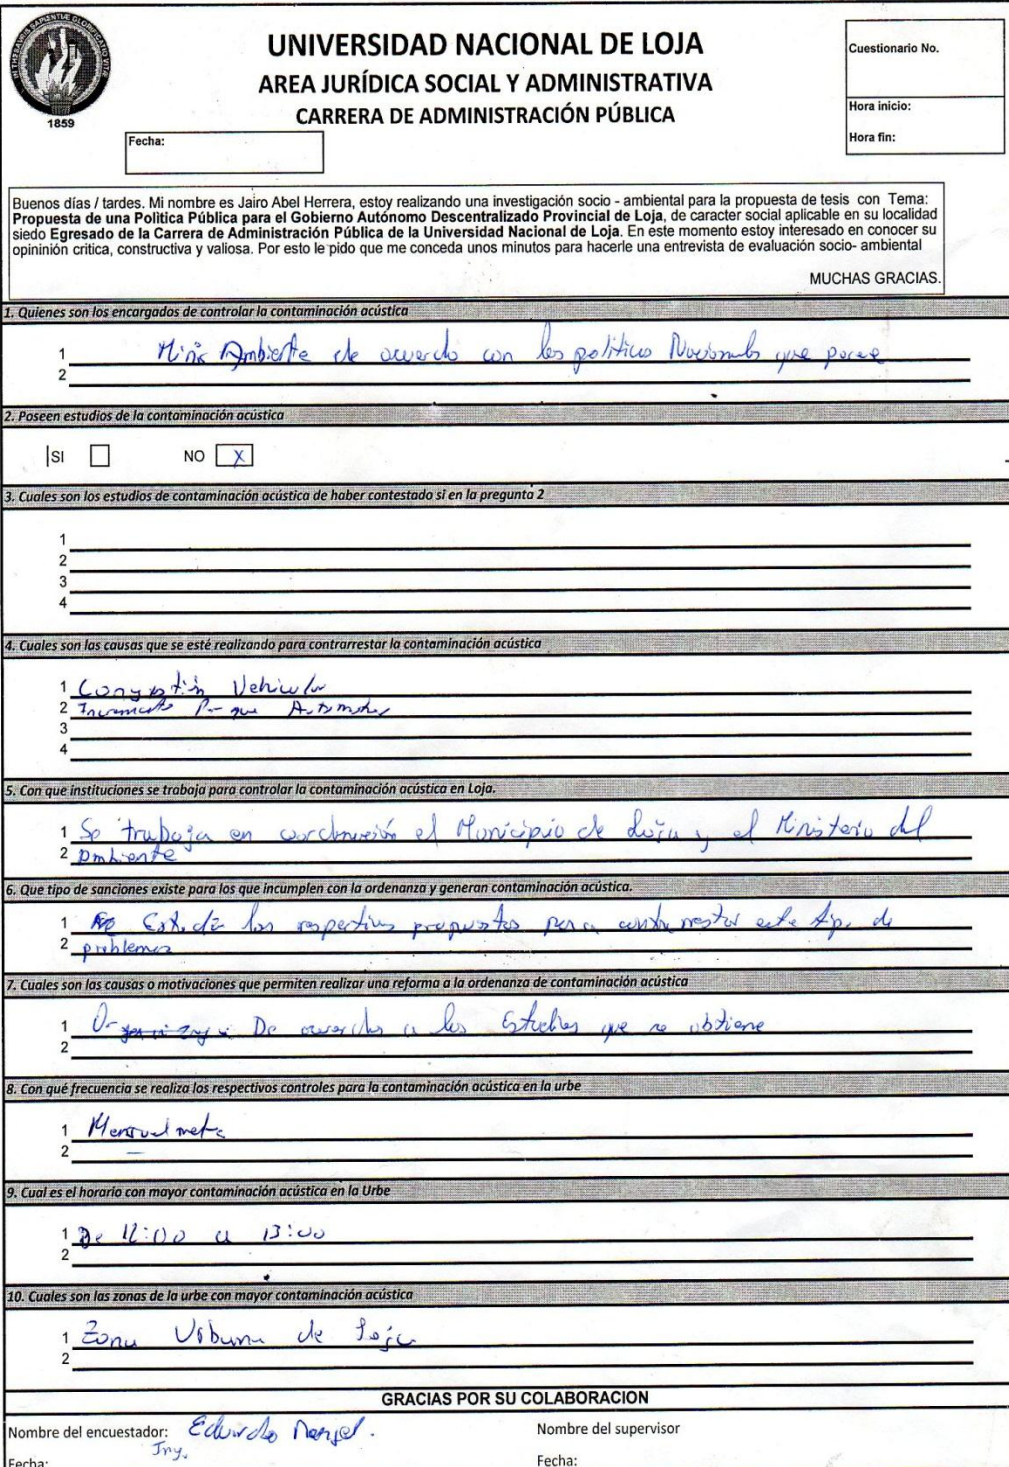 IN THESAURIS SAPIENTIAE GLORIFICATIO VITAE
1859
UNIVERSIDAD NACIONAL DE LOJA
AREA JURÍDICA SOCIAL Y ADMINISTRATIVA
CARRERA DE ADMINISTRACIÓN PÚBLICA
Cuestionario No.
Hora inicio:
Hora fin:
Fecha:
Buenos días / tardes. Mi nombre es Jairo Abel Herrera, estoy realizando una investigación socio - ambiental para la propuesta de tesis con Tema:
Propuesta de una Polìtica Pública para el Gobierno Autónomo Descentralizado Provincial de Loja, de caracter social aplicable en su localidad
siedo Egresado de la Carrera de Administración Pública de la Universidad Nacional de Loja. En este momento estoy interesado en conocer su
opininión critica, constructiva y valiosa. Por esto le pido que me conceda unos minutos para hacerle una entrevista de evaluación socio- ambiental
MUCHAS GRACIAS.
1. Quienes son los encargados de controlar la contaminación acústica
1 Ambiente de acuerdo con las politicas Nacionales que posee
2
2. Poseen estudios de la contaminación acústica
SI NO X
3. Cuales son los estudios de contaminación acústica de haber contestado si en la pregunta 2
1
2
3
4
4. Cuales son las causas que se esté realizando para contrarrestar la contaminación acústica
1 Congestión Vehicular
2 Incremento Parque Automotor
3
4
5. Con que instituciones se trabaja para controlar la contaminación acústica en Loja.
1 Se trabaja en coordinación el Municipio de Loja y el Ministerio del
2 Ambiente
6. Que tipo de sanciones existe para los que incumplen con la ordenanza y generan contaminación acústica.
1 las respectivas propuestas para contrarrestar este tipo de
2 problemas
7. Cuales son las causas o motivaciones que permiten realizar una reforma a la ordenanza de contaminación acústica
1 De acuerdo a los Estudios que se obtiene
2
8. Con qué frecuencia se realiza los respectivos controles para la contaminación acústica en la urbe
1 Mensualmente
2
9. Cual es el horario con mayor contaminación acústica en la Urbe
1 De 12:00 a 13:00
2
10. Cuales son las zonas de la urbe con mayor contaminación acústica
1 Zona Urbana de Loja
2
GRACIAS POR SU COLABORACION
Nombre del encuestador: Eduardo
Nombre del supervisor
Ing.
Fecha:
Fecha: